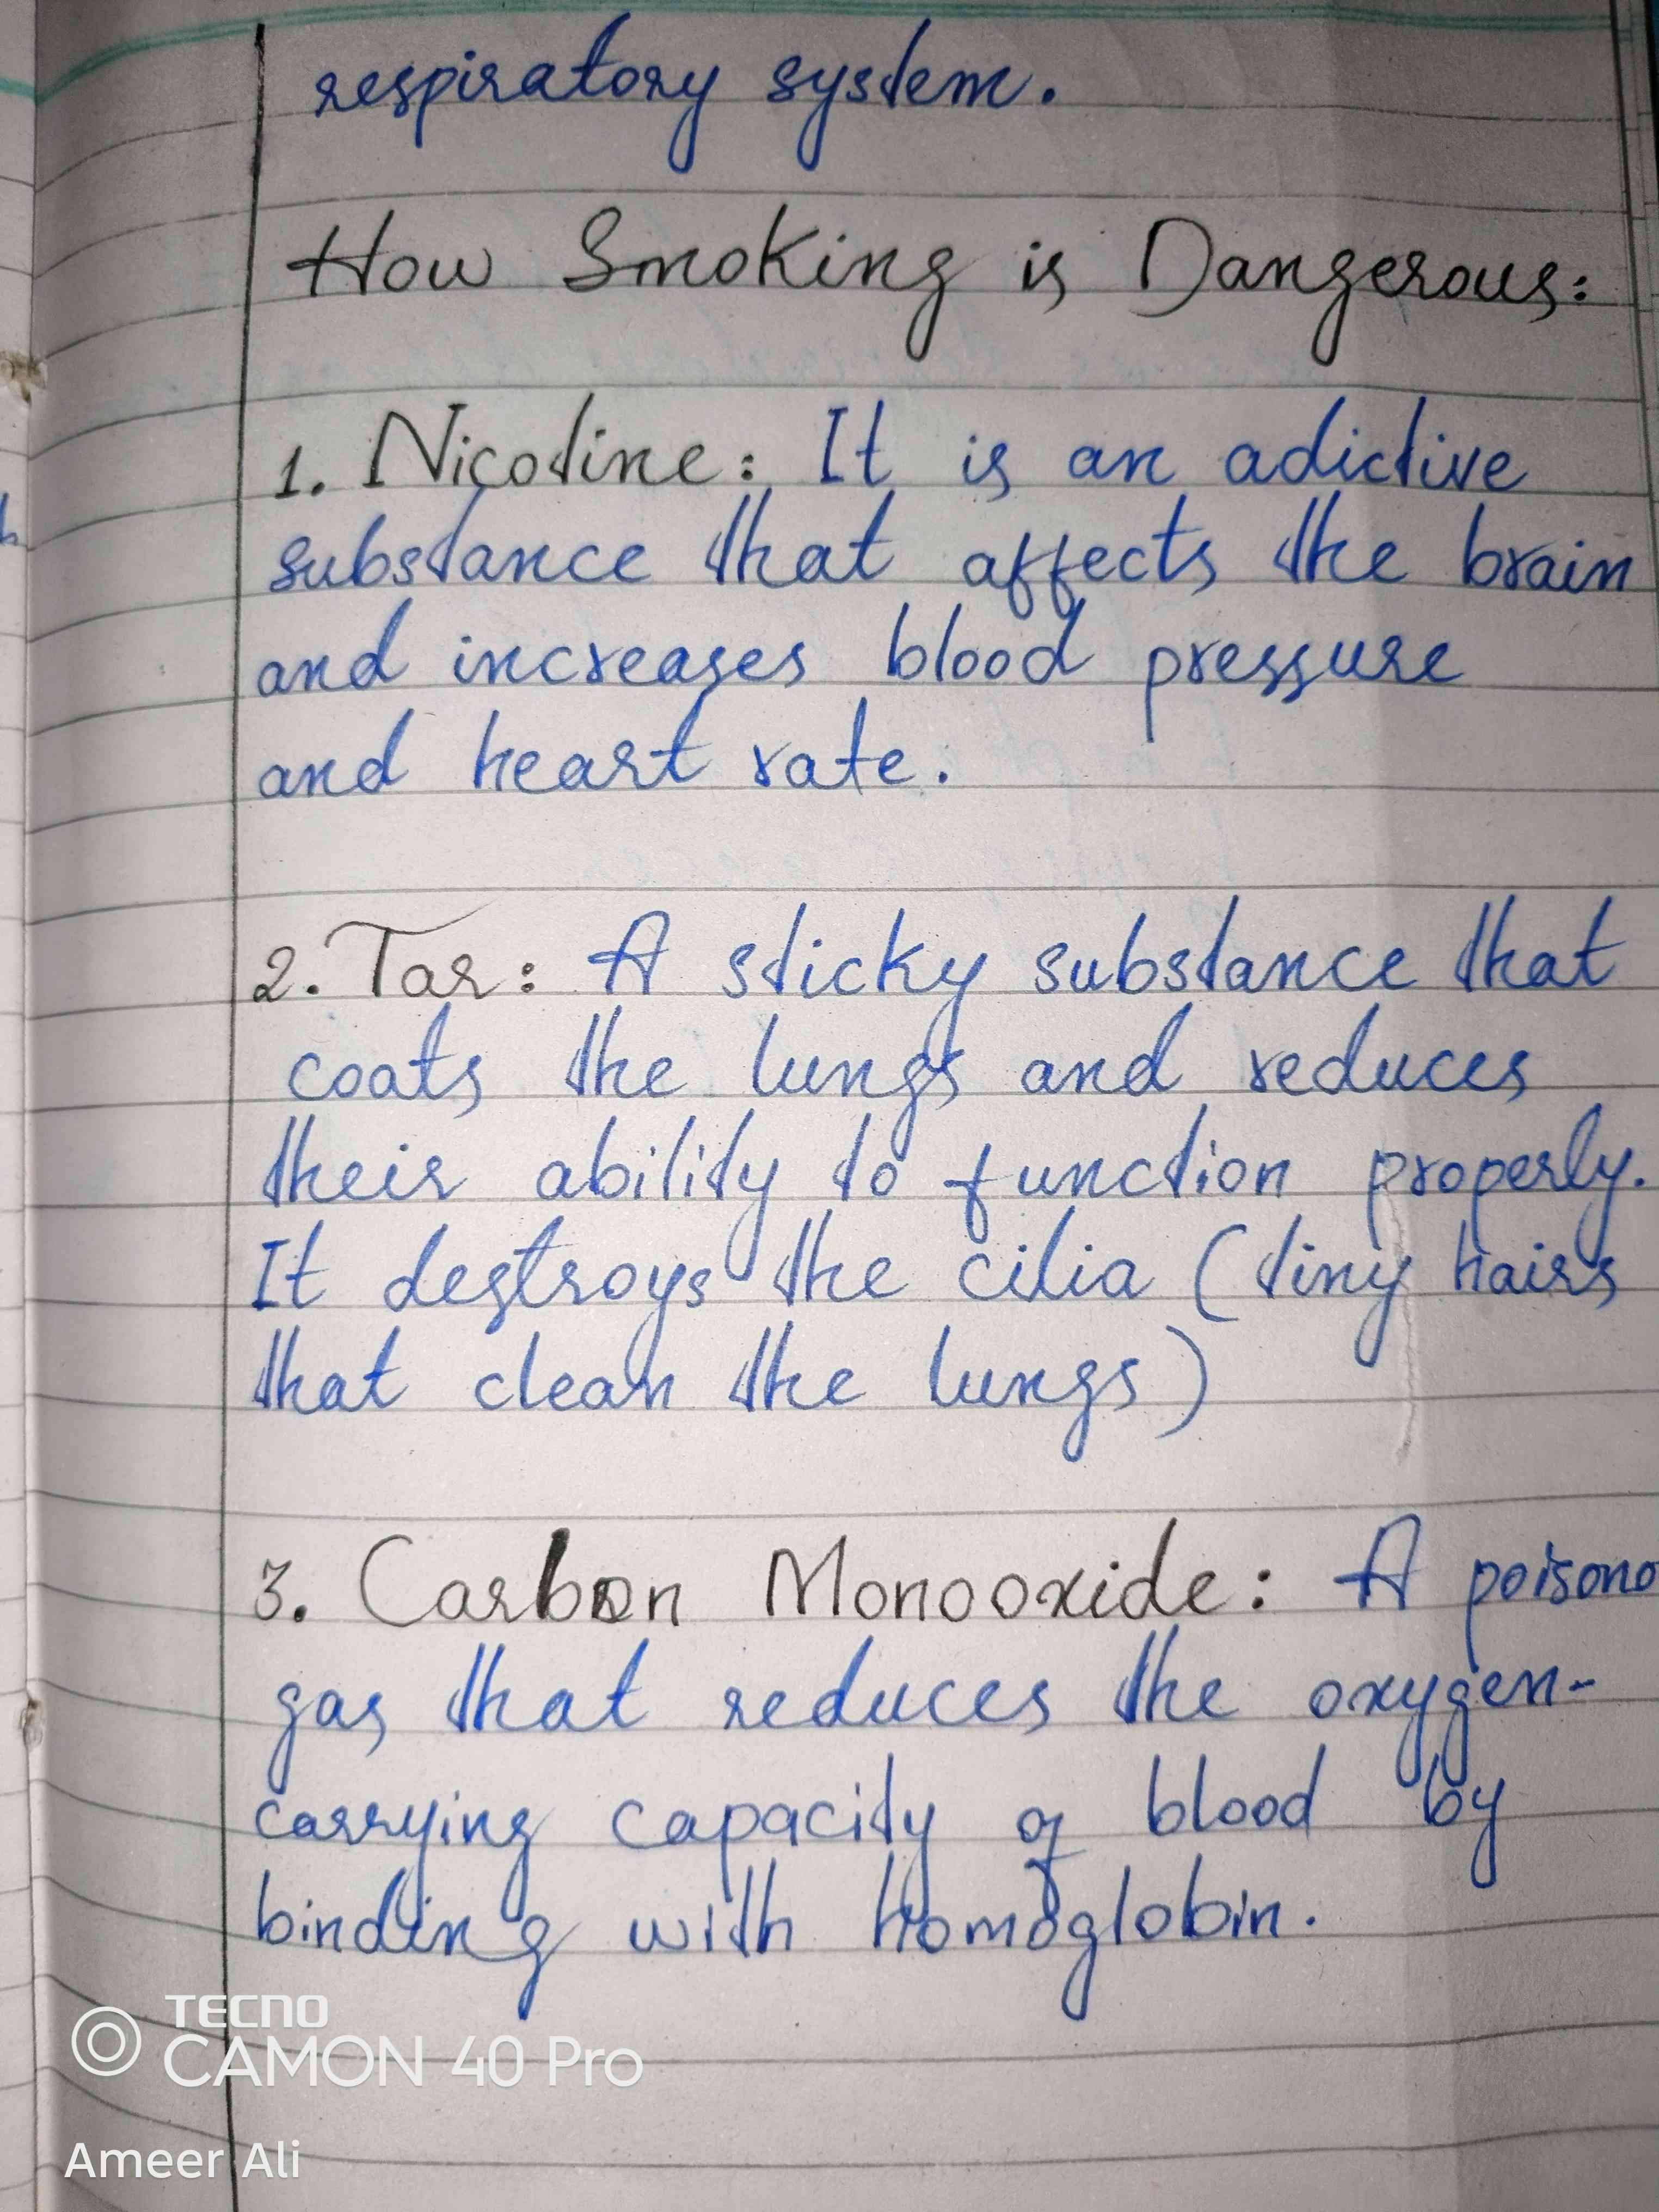 respiratory system.
How Smoking is Dangerous:
1. Nicotine: It is an adictive
substance that affects the brain
and increases blood pressure
and heart rate.
2. Tar: A sticky substance that
coats the lungs and reduces
their ability to function properly.
It destroys the cilia (tiny hairs
that clean the lungs)
3. Carbon Monooxide: A poisono
gas that reduces the oxygen-
carrying capacity of blood by
binding with homoglobin.
TECNO
CAMON 40 Pro
Ameer Ali